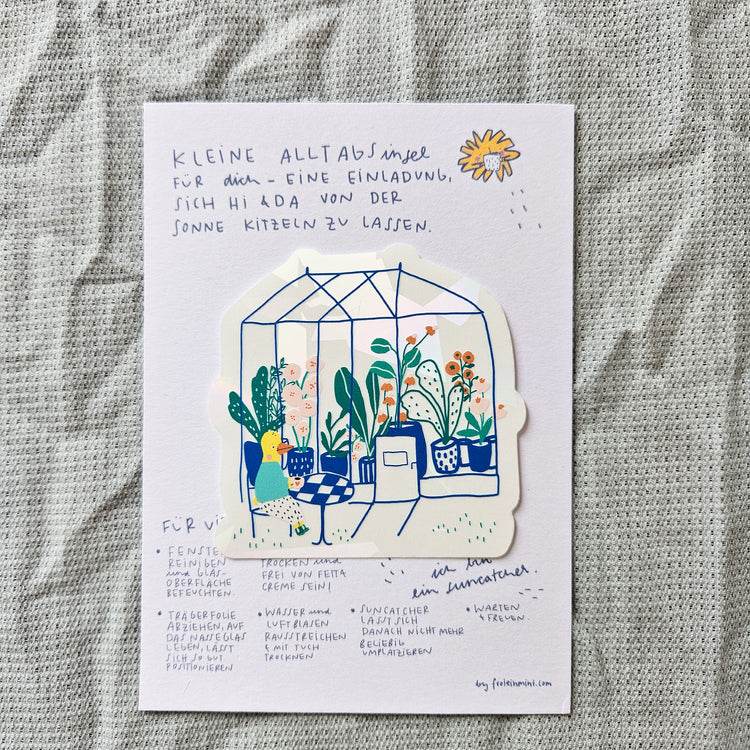 KLEINE ALLTAGSinsel
FÜR dich – EINE EINLADUNG,
SICH HI & DA VON DER
SONNE KITZELN ZU LASSEN.
FÜR
• FENSTER
REINIGEN
und GLAS-
OBERFLÄCHE
BEFEUCHTEN.
TROCKEN und
FREI VON FETT &
CREME SEIN!
ich bin
ein suncatcher.
• TRÄGERFOLIE
ABZIEHEN, AUF
DAS NASSE GLAS
LEGEN, LÄSST
SICH SO GUT
POSITIONIEREN
• WASSER und
LUFTBLASEN
RAUSSTREICHEN
& MIT TUCH
TROCKNEN
• SUNCATCHER
LÄSST SICH
DANACH NICHT MEHR
BELIEBIG
UMPLATZIEREN
• WARTEN
& FREUEN.
by froleinmint.com